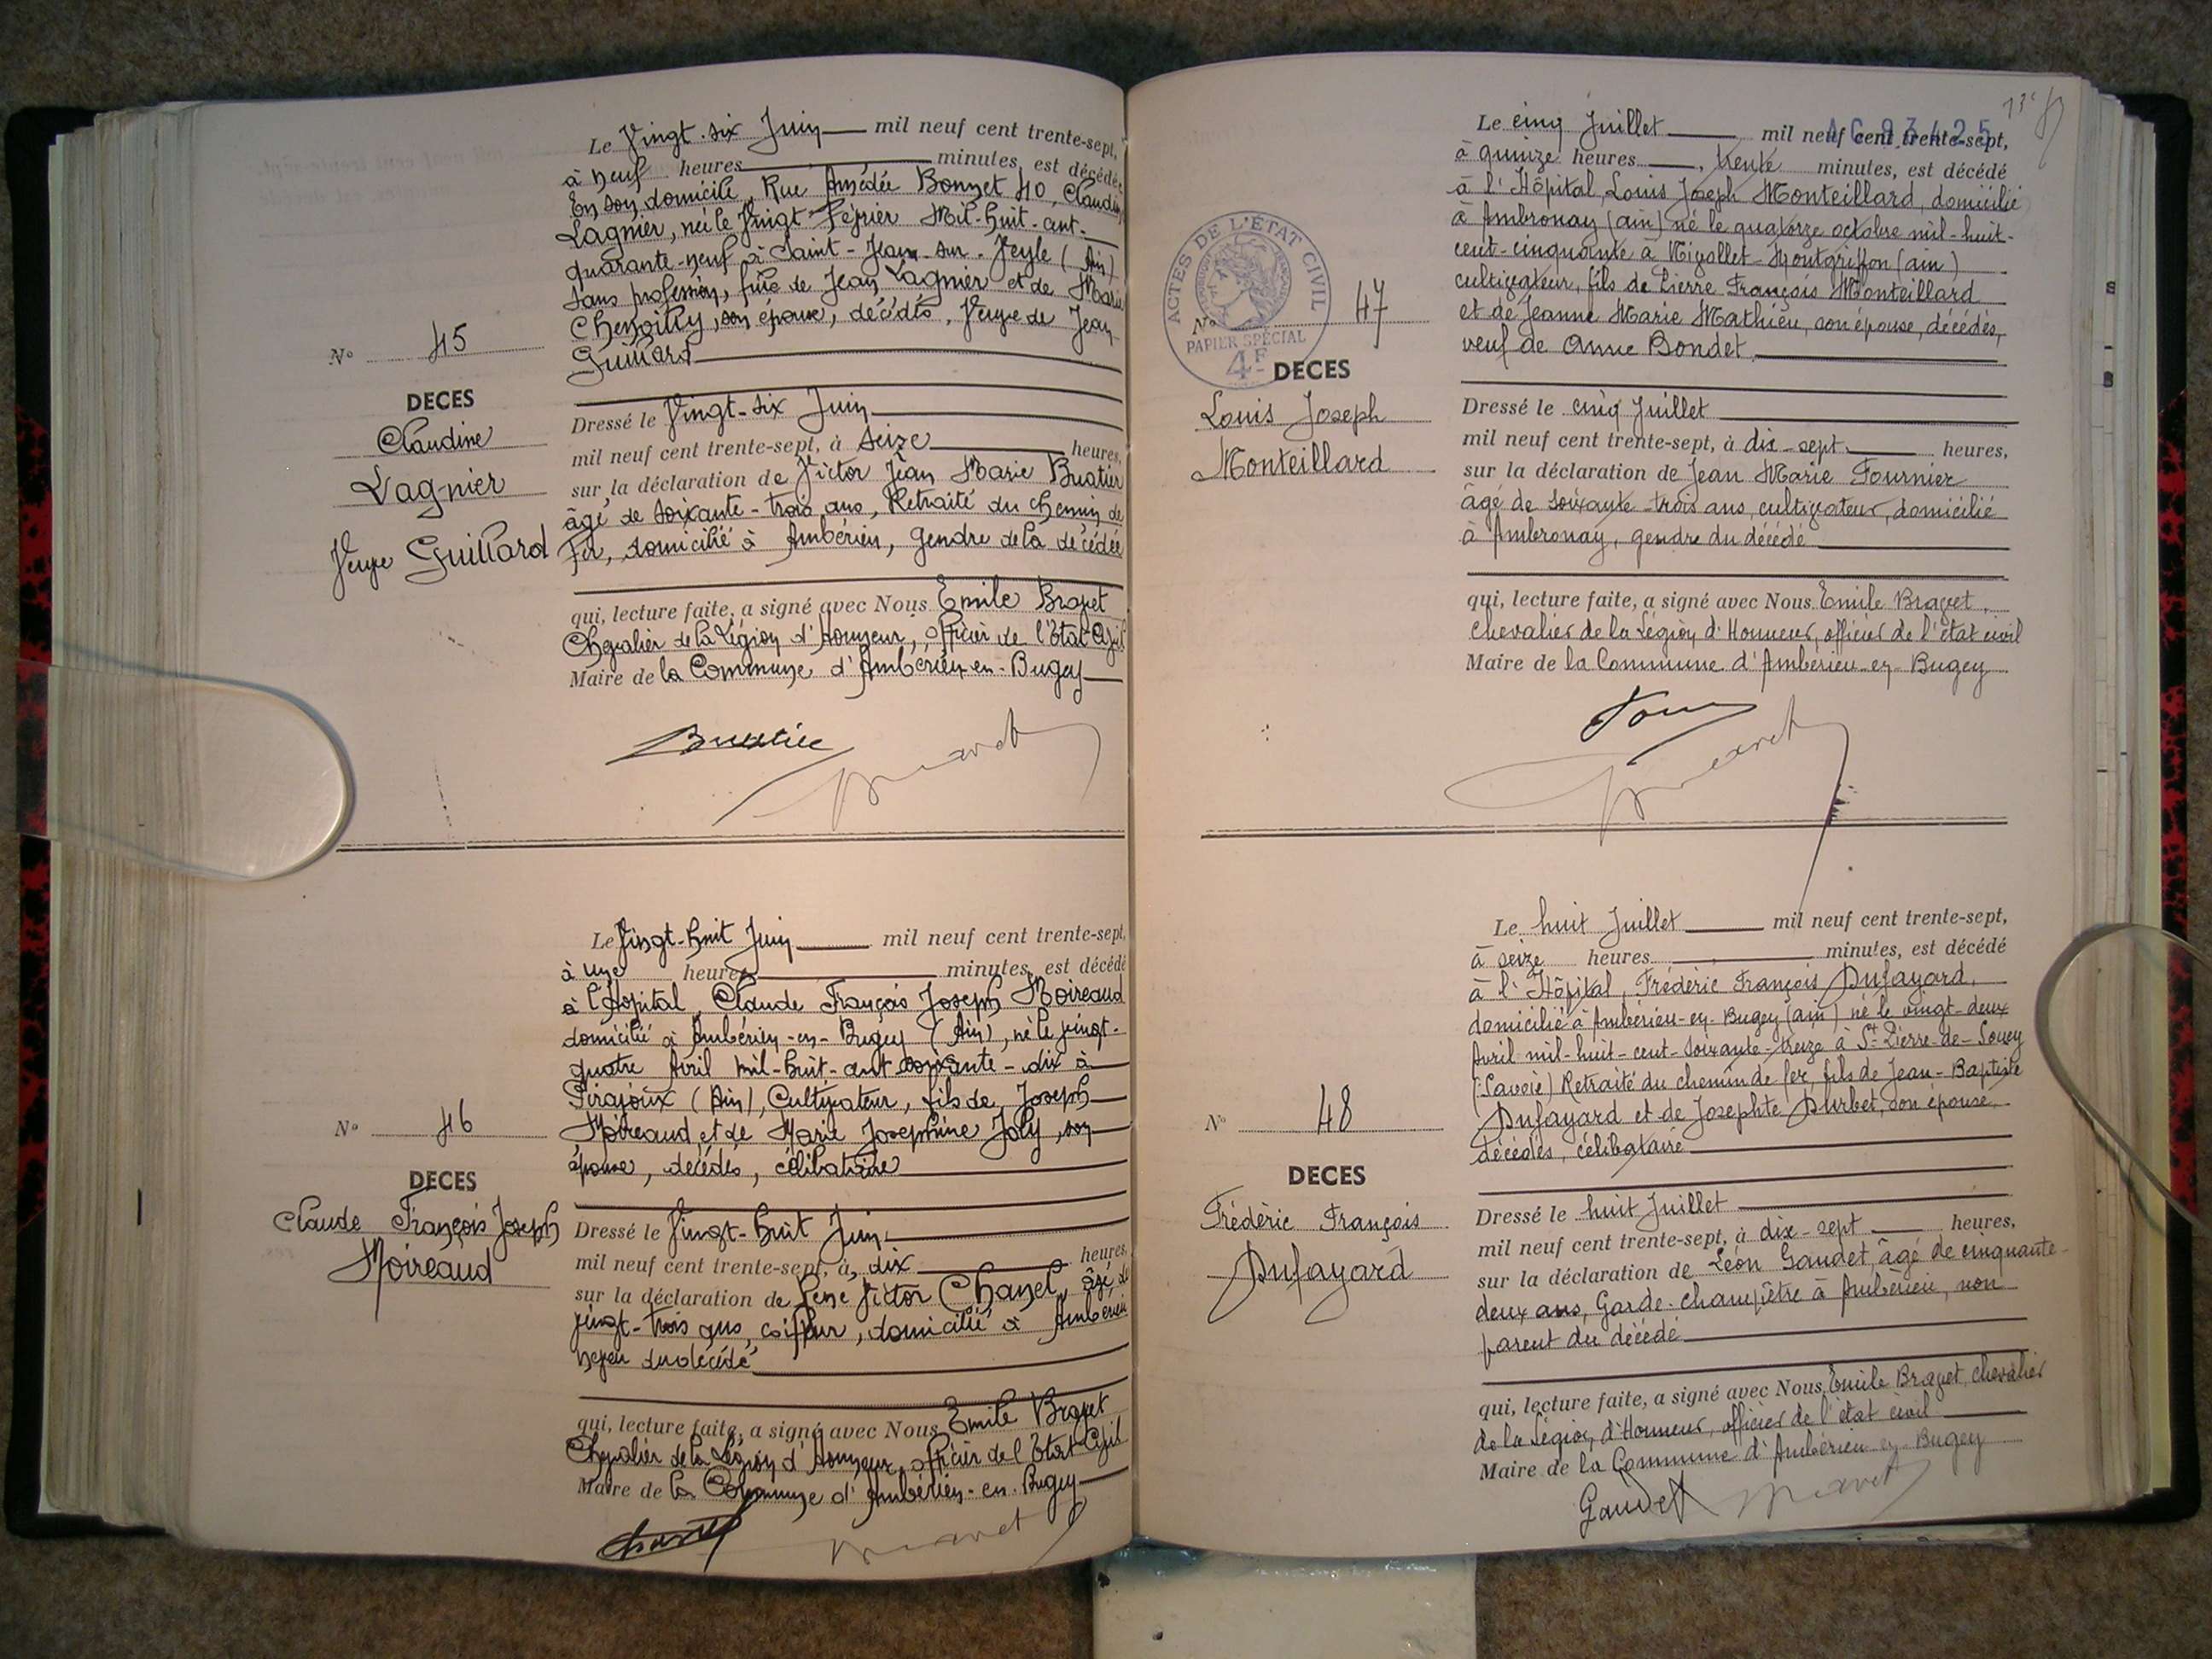 Le Vingt-six Juin mil neuf cent trente-sept,
à neuf heures minutes, est décédée
En son domicile, Rue Amédée Bonnet 40, Claudine
Lagnier, née le Vingt Février Mil-huit-cent-
quarante-neuf à Saint-Jean-sur-Veyle (Ain)
sans profession, fille de Jean Lagnier et de Marie
son épouse, décédés, Veuve de Jean
Guillard
N° 45
DECES
Claudine
Lagnier
Veuve Guillard
Dressé le Vingt-six Juin
mil neuf cent trente-sept, à seize heures,
sur la déclaration de Victor Jean Marie Buatier
âgé de soixante-trois ans, Retraité du chemin de
Fer, domicilié à Ambérieu, gendre de la décédée
qui, lecture faite, a signé avec Nous Emile Bravet
Chevalier de la Légion d'Honneur, officier de l'Etat-Civil
Maire de la Commune d'Ambérieu-en-Bugey
Buatier Bravet
Le Vingt-huit Juin mil neuf cent trente-sept,
à une heures minutes, est décédé
à l'Hopital, Claude François Joseph Moireaud
domicilié à Ambérieu-en-Bugey (Ain), né le vingt-
quatre Avril mil-huit-cent soixante-dix à
Pirajoux (Ain), Cultivateur, fils de Joseph
Moireaud et de Marie Josephine Joly, son
épouse, décédés, célibataire
N° 46
DECES
Claude François Joseph
Moireaud
Dressé le Vingt-huit Juin
mil neuf cent trente-sept, à dix heures,
sur la déclaration de René Victor Chanel, âgé de
vingt-trois ans, coiffeur, domicilié à Ambérieu
neveu du décédé
qui, lecture faite, a signé avec Nous Emile Bravet
Chevalier de la Légion d'Honneur, officier de l'Etat-Civil
Maire de la Commune d'Ambérieu-en-Bugey
Chanel Bravet
13e
AC 93425
Le cinq Juillet mil neuf cent trente-sept,
à quinze heures, trente minutes, est décédé
à l'Hôpital, Louis Joseph Monteillard, domicilié
à Ambronay (ain) né le quatorze octobre mil-huit-
cent-cinquante à Nivollet-Montgriffon (ain)
cultivateur, fils de Pierre François Monteillard
et de Jeanne Marie Mathieu, son épouse, décédés,
veuf de Anne Bondet
ACTES DE L'ÉTAT CIVIL
PAPIER SPECIAL
4F
N° 47
DECES
Louis Joseph
Monteillard
Dressé le cinq Juillet
mil neuf cent trente-sept, à dix-sept heures,
sur la déclaration de Jean Marie Fournier
âgé de soixante-trois ans, cultivateur, domicilié
à Ambronay, gendre du décédé
qui, lecture faite, a signé avec Nous Emile Bravet,
chevalier de la Légion d'Honneur, officier de l'état civil
Maire de la Commune d'Ambérieu-en-Bugey
Bravet
Le huit Juillet mil neuf cent trente-sept,
à seize heures minutes, est décédé
à l'Hôpital, Frédéric François Dufayard,
domicilié à Ambérieu-en-Bugey (ain) né le vingt-deux
Avril mil-huit-cent-soixante-treize à St Pierre-de-Soucy
(Savoie) Retraité du chemin de fer, fils de Jean-Baptiste
Dufayard et de Josephte Durbet, son épouse,
décédés, célibataire
N° 48
DECES
Frédéric François
Dufayard
Dressé le huit Juillet
mil neuf cent trente-sept, à dix-sept heures,
sur la déclaration de Léon Gaudet, âgé de cinquante-
deux ans, Garde-champêtre à Ambérieu, non
parent du décédé
qui, lecture faite, a signé avec Nous Emile Bravet, chevalier
de la Légion, d'Honneur, officier de l'état civil
Maire de la Commune d'Ambérieu-en-Bugey
Gaudet Bravet